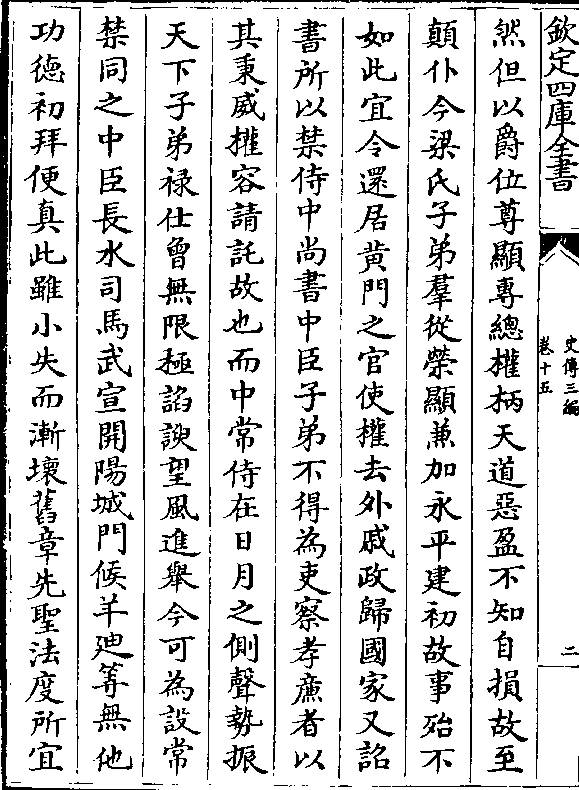 欽定四庫全書
史傳三編
卷十五
二
然但以爵位尊顯專總權柄天道惡盈不知自損故至
顛仆今梁氏子弟羣從榮顯兼加永平建初故事殆不
如此宜令還居黄門之官使權去外戚政歸國家又詔
書所以禁侍中尚書中臣子弟不得為吏察孝亷者以
其秉威權容請託故也而中常侍在日月之側聲勢振
天下子弟禄仕曾無限極諂諛望風進舉今可為設常
禁同之中臣長水司馬武宣開陽城門候羊廸等無他
功德初拜便真此雖小失而漸壞舊章先聖法度所宜